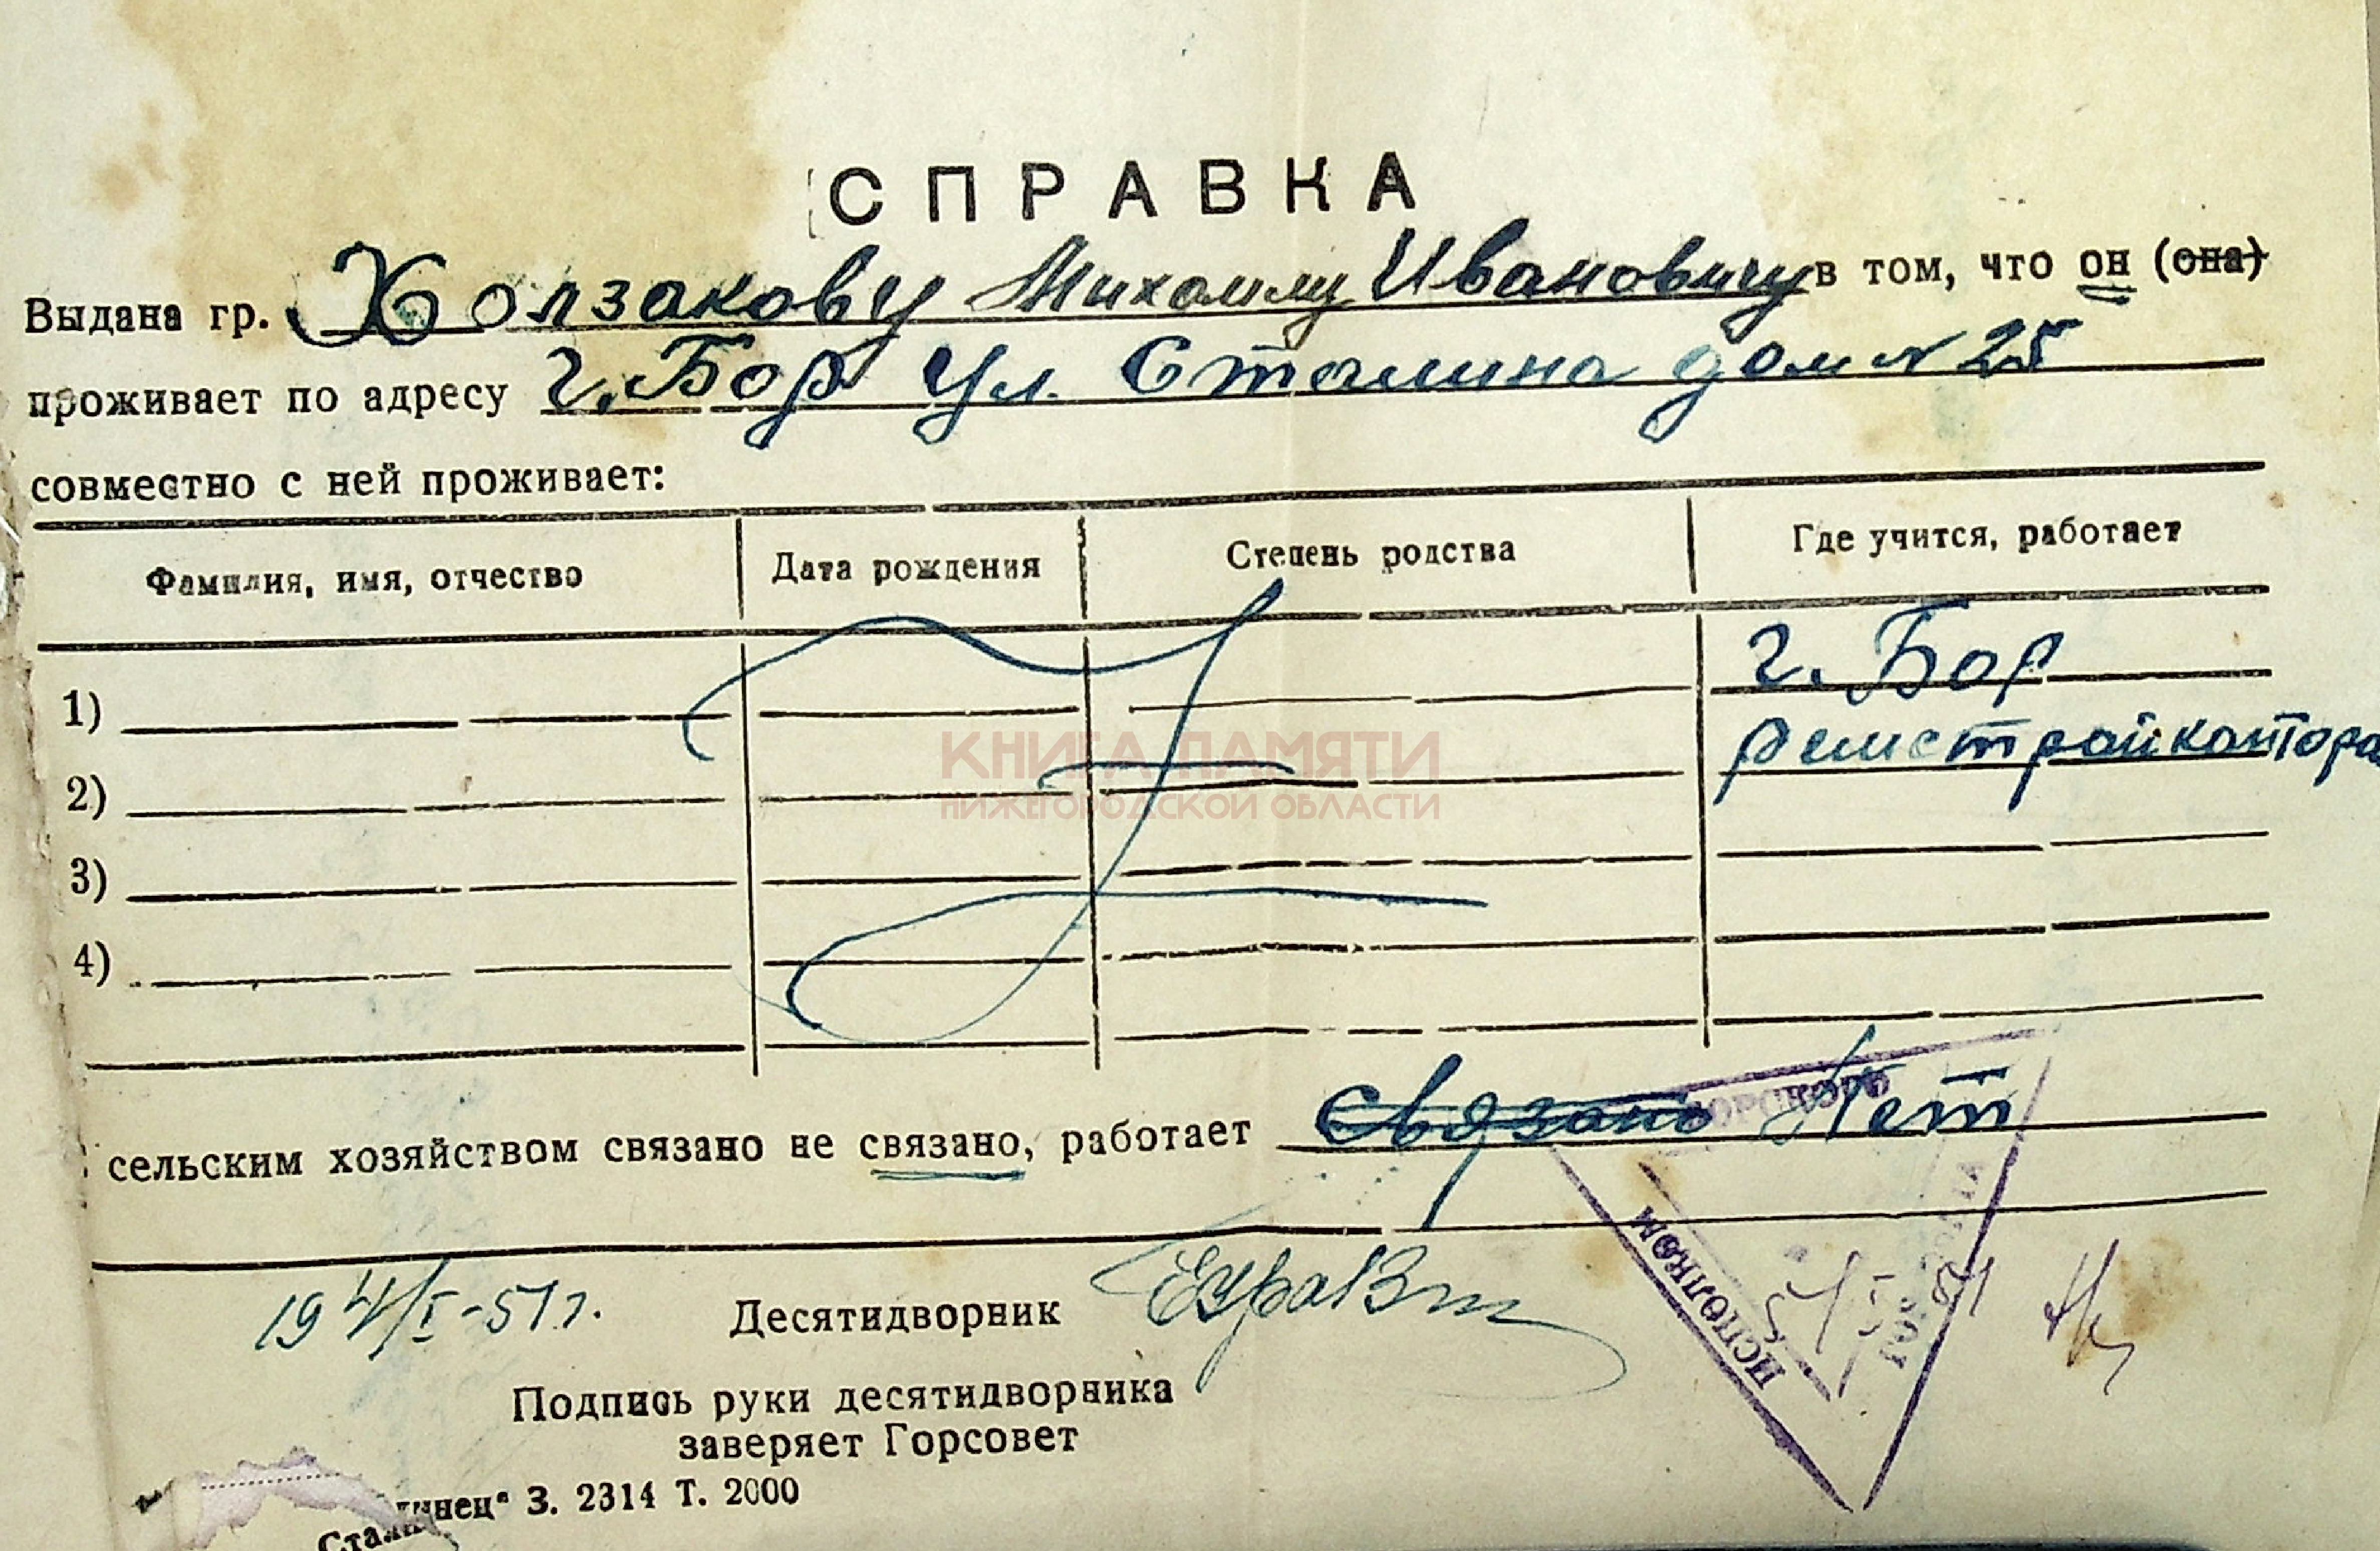 СПРАВКА
Выдана гр. Холзакову Михаилу Ивановичу в том, что он (она)
проживает по адресу г. Бор ул. Сталина дом N 25
совместно с ней проживает:
Фамилия, имя, отчество Дата рождения Степень родства Где учится, работает
1) г. Бор
2) ремстройконтора
3)
4)
КНИГА ПАМЯТИ
НИЖЕГОРОДСКОЙ ОБЛАСТИ
сельским хозяйством связано не связано, работает связано Нет
БОРСКОГО
ИСПОЛКОМ
194/I-51 г. Десятидворник
Подпись руки десятидворника
заверяет Горсовет
Сталинец" З. 2314 Т. 2000